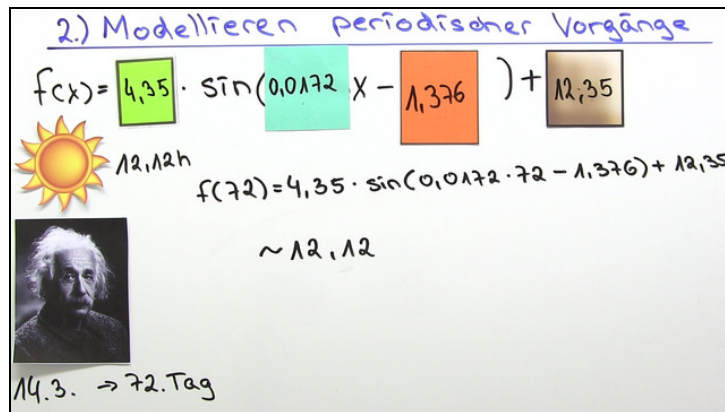 2.) Modellieren periodischer Vorgänge
f(x) = 4,35 · sin(0,0172 x - 1,376) + 12,35
12,12h
f(72) = 4,35 · sin(0,0172 · 72 - 1,376) + 12,35
~ 12,12
14.3. → 72. Tag